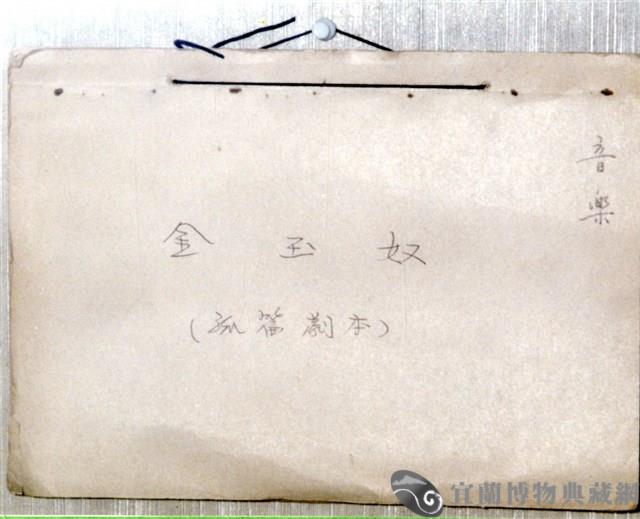 音樂
金玉奴
(孤篇劇本)
宜蘭博物典藏網